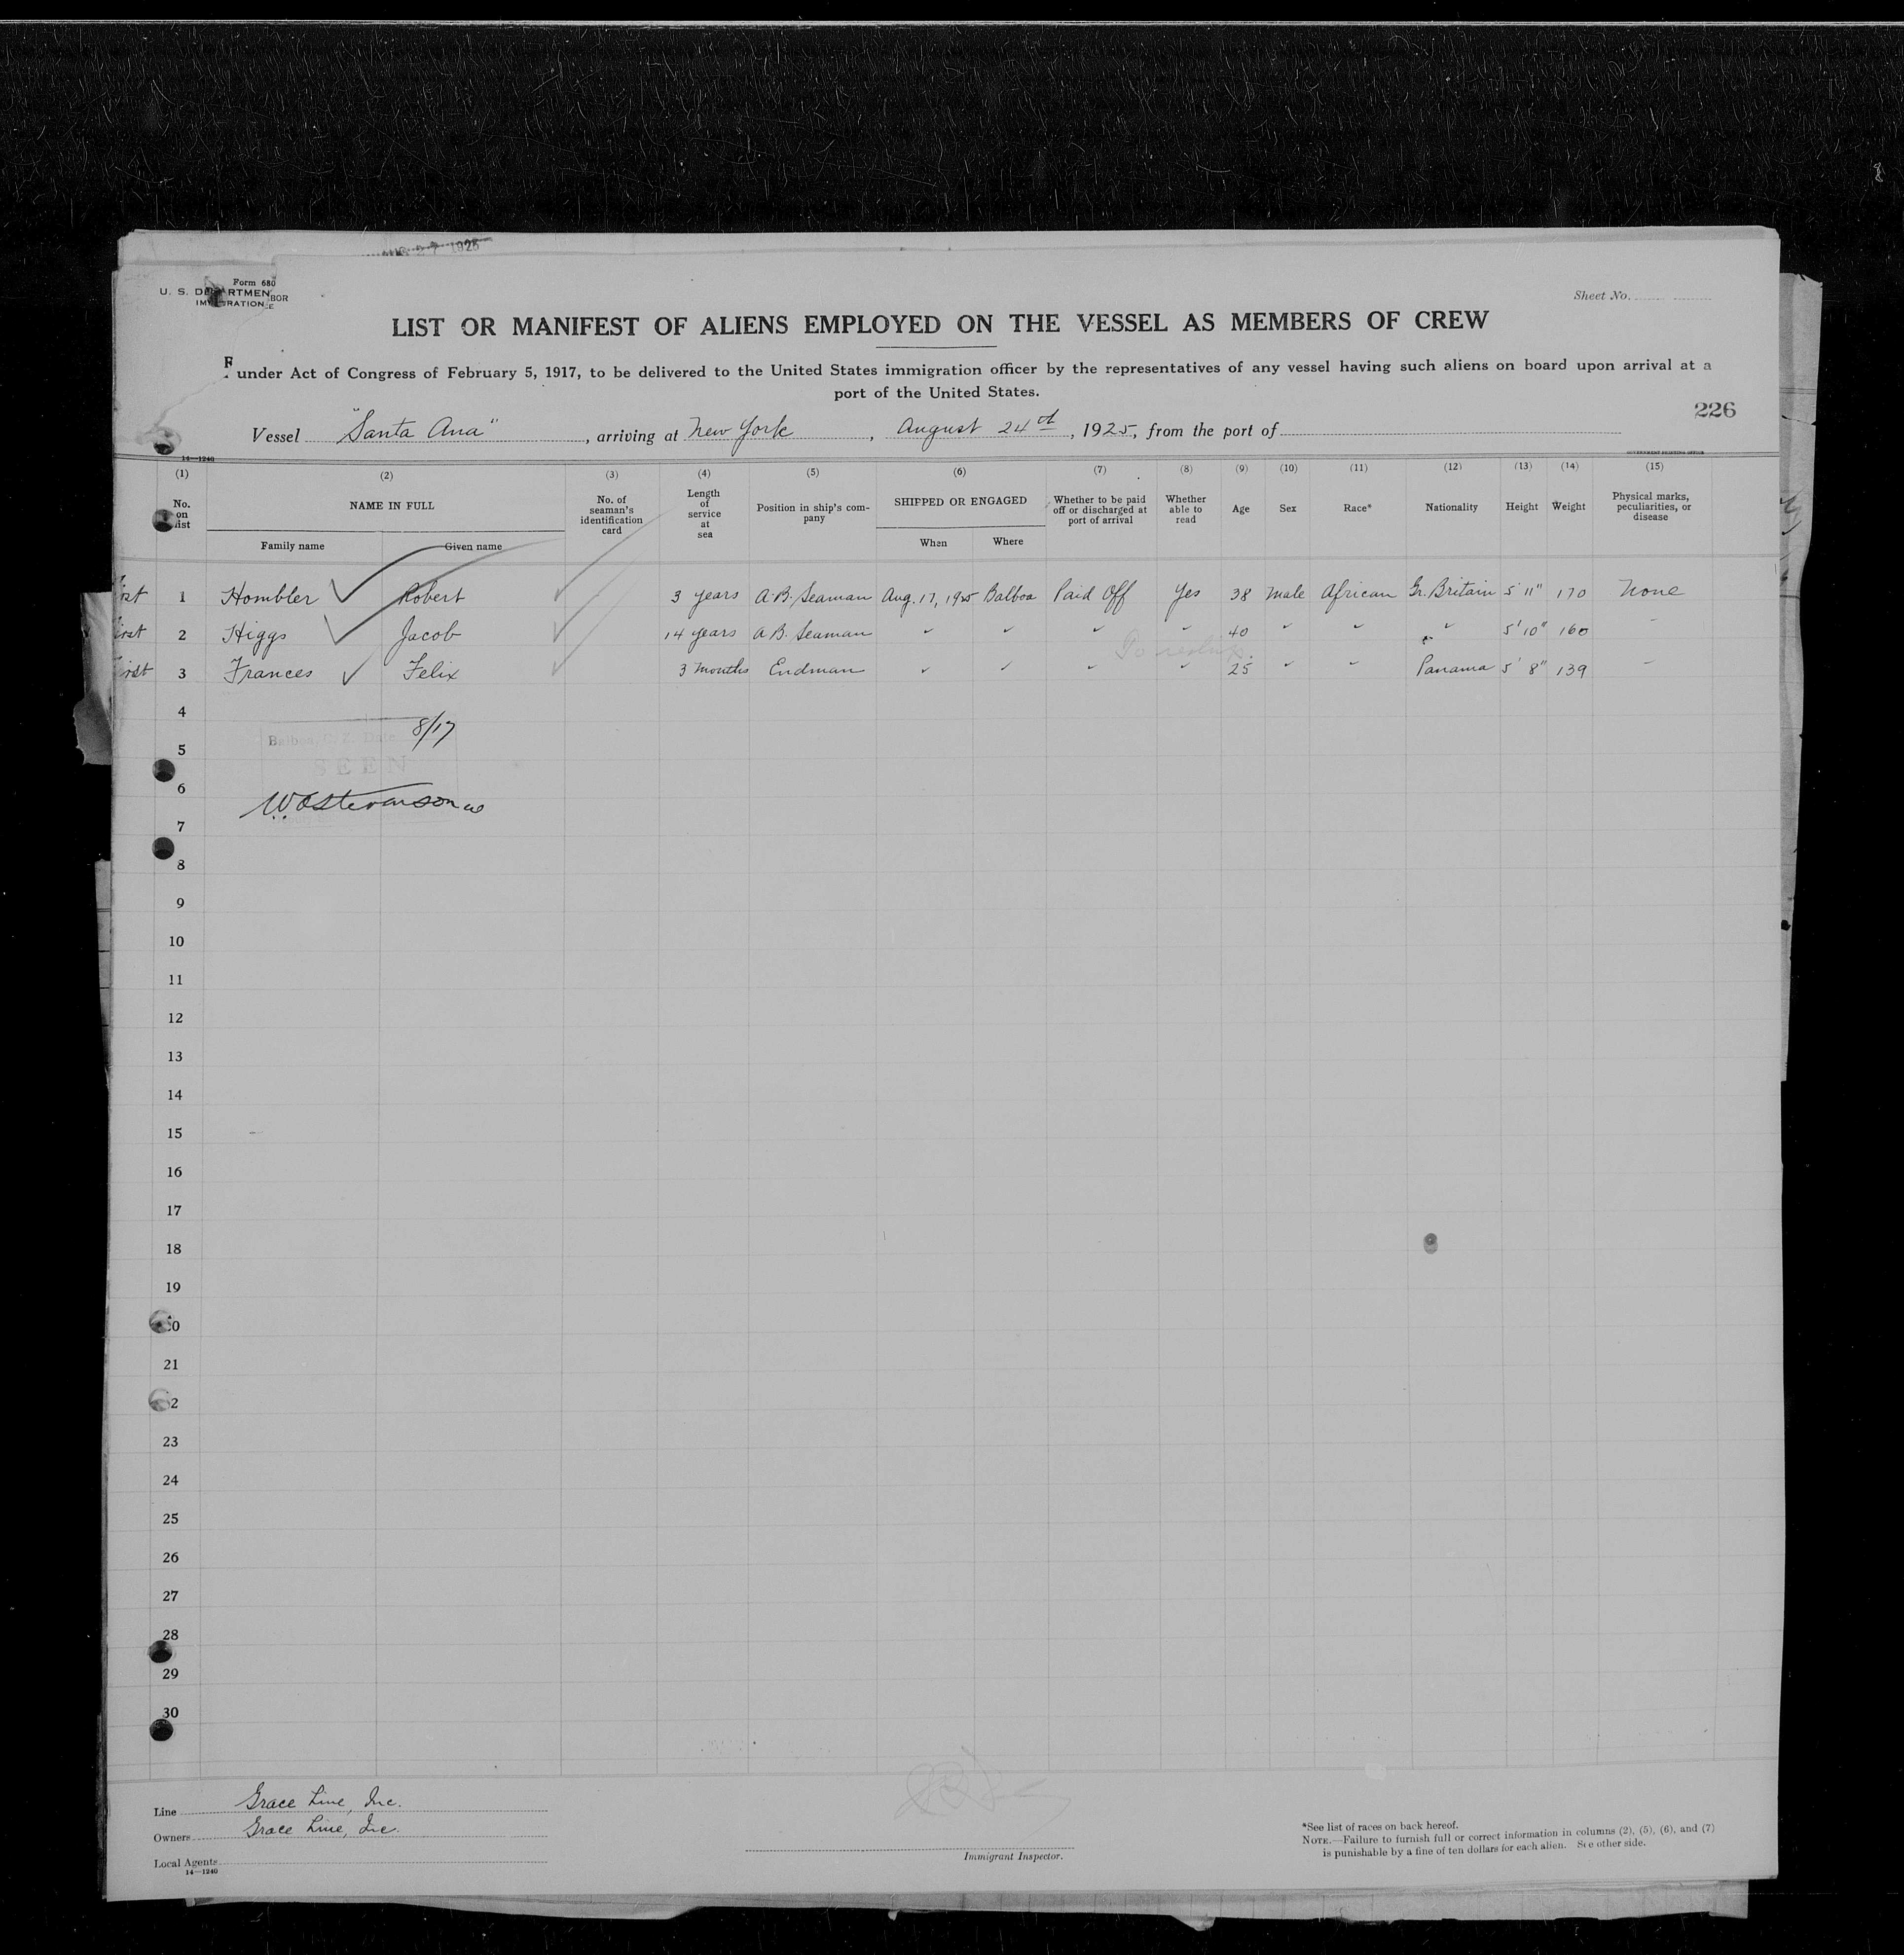 AUG 27 1925
Form 680
U. S. DEPARTMEN BOR
IMMIGRATION E
Sheet No.
LIST OR MANIFEST OF ALIENS EMPLOYED ON THE VESSEL AS MEMBERS OF CREW
under Act of Congress of February 5, 1917, to be delivered to the United States immigration officer by the representatives of any vessel having such aliens on board upon arrival at a
port of the United States.
226
Vessel "Santa Ana", arriving at New York, August 24th, 1925, from the port of
14—1240 GOVERNMENT PRINTING OFFICE
(1) (2) (3) (4) (5) (6) (7) (8) (9) (10) (11) (12) (13) (14) (15)
No. on list NAME IN FULL No. of seaman's identification card Length of service at sea Position in ship's company SHIPPED OR ENGAGED Whether to be paid off or discharged at port of arrival Whether able to read Age Sex Race* Nationality Height Weight Physical marks, peculiarities, or disease
Family name Given name When Where
1 Hombler Robert 3 years A.B. Seaman Aug. 17, 1925 Balboa Paid Off Yes 38 Male African Gr. Britain 5' 11" 170 None
2 Higgs Jacob 14 years A B. Seaman " " " " 40 " " " 5' 10" 160 "
To reship.
3 Frances Felix 3 months Endman " " " " 25 " " Panama 5' 8" 139 "
4
8/17
Balboa, C. Z. Date
5
SEEN
6
7
8
9
10
11
12
13
14
15
16
17
18
19
20
21
22
23
24
25
26
27
28
29
30
Line Grace Line, Inc.
Owners Grace Line, Inc.
Local Agents
14—1240
Immigrant Inspector.
*See list of races on back hereof.
NOTE.—Failure to furnish full or correct information in columns (2), (5), (6), and (7)
is punishable by a fine of ten dollars for each alien. See other side.